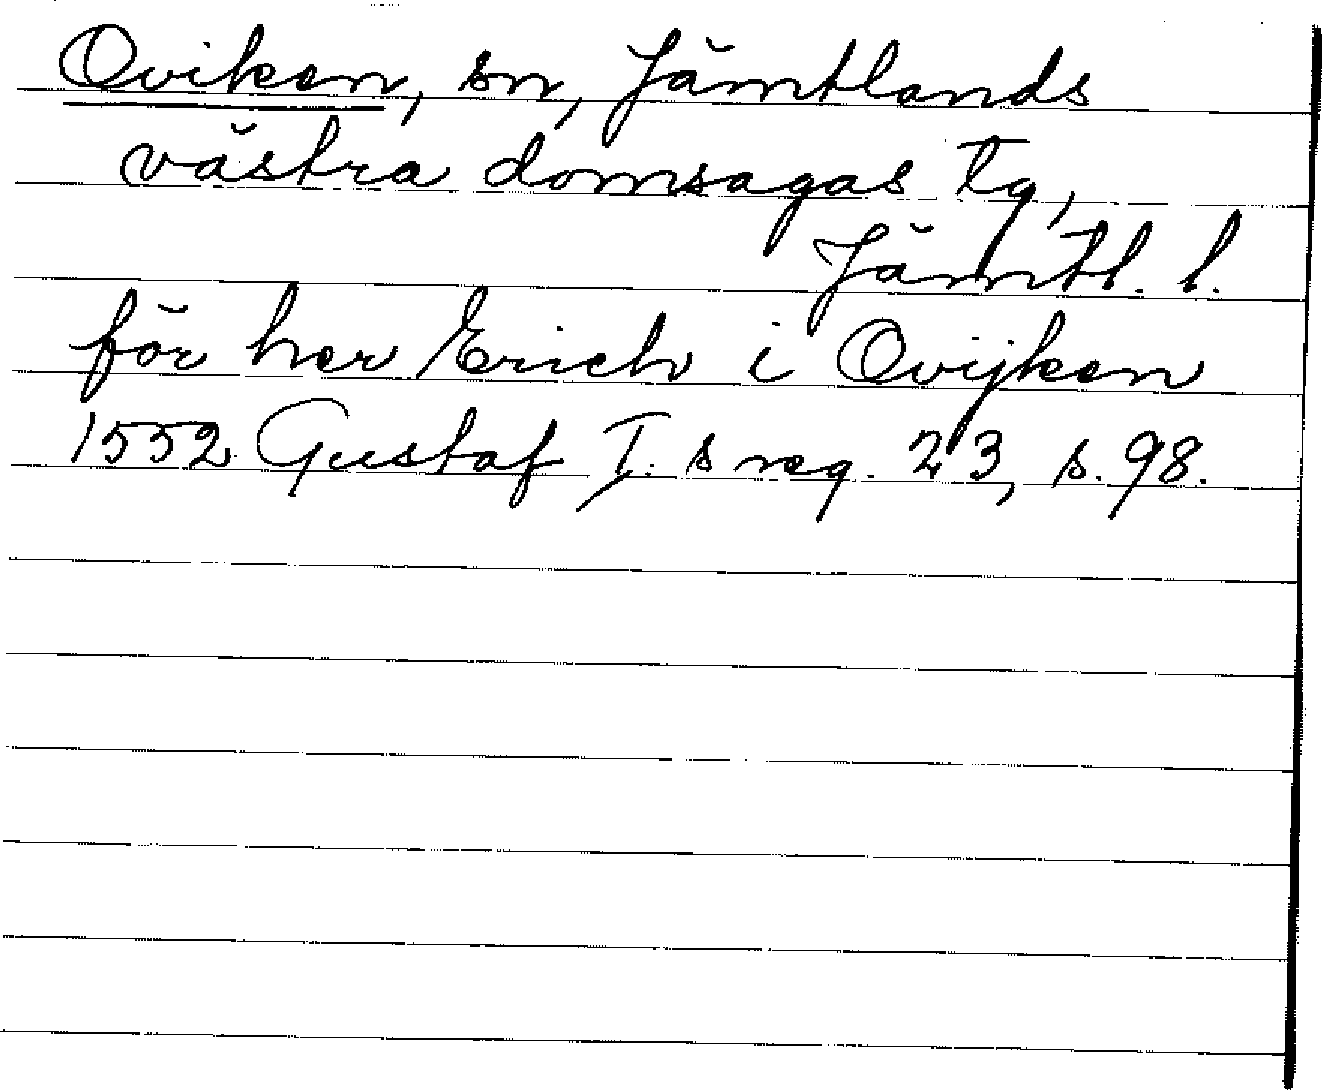 Oviken, sn, Jämtlands
västra domsagas tg,
Jämtl. l.
för her Erich i Ovijken
1552 Gustaf I. s reg. 23, s. 98.